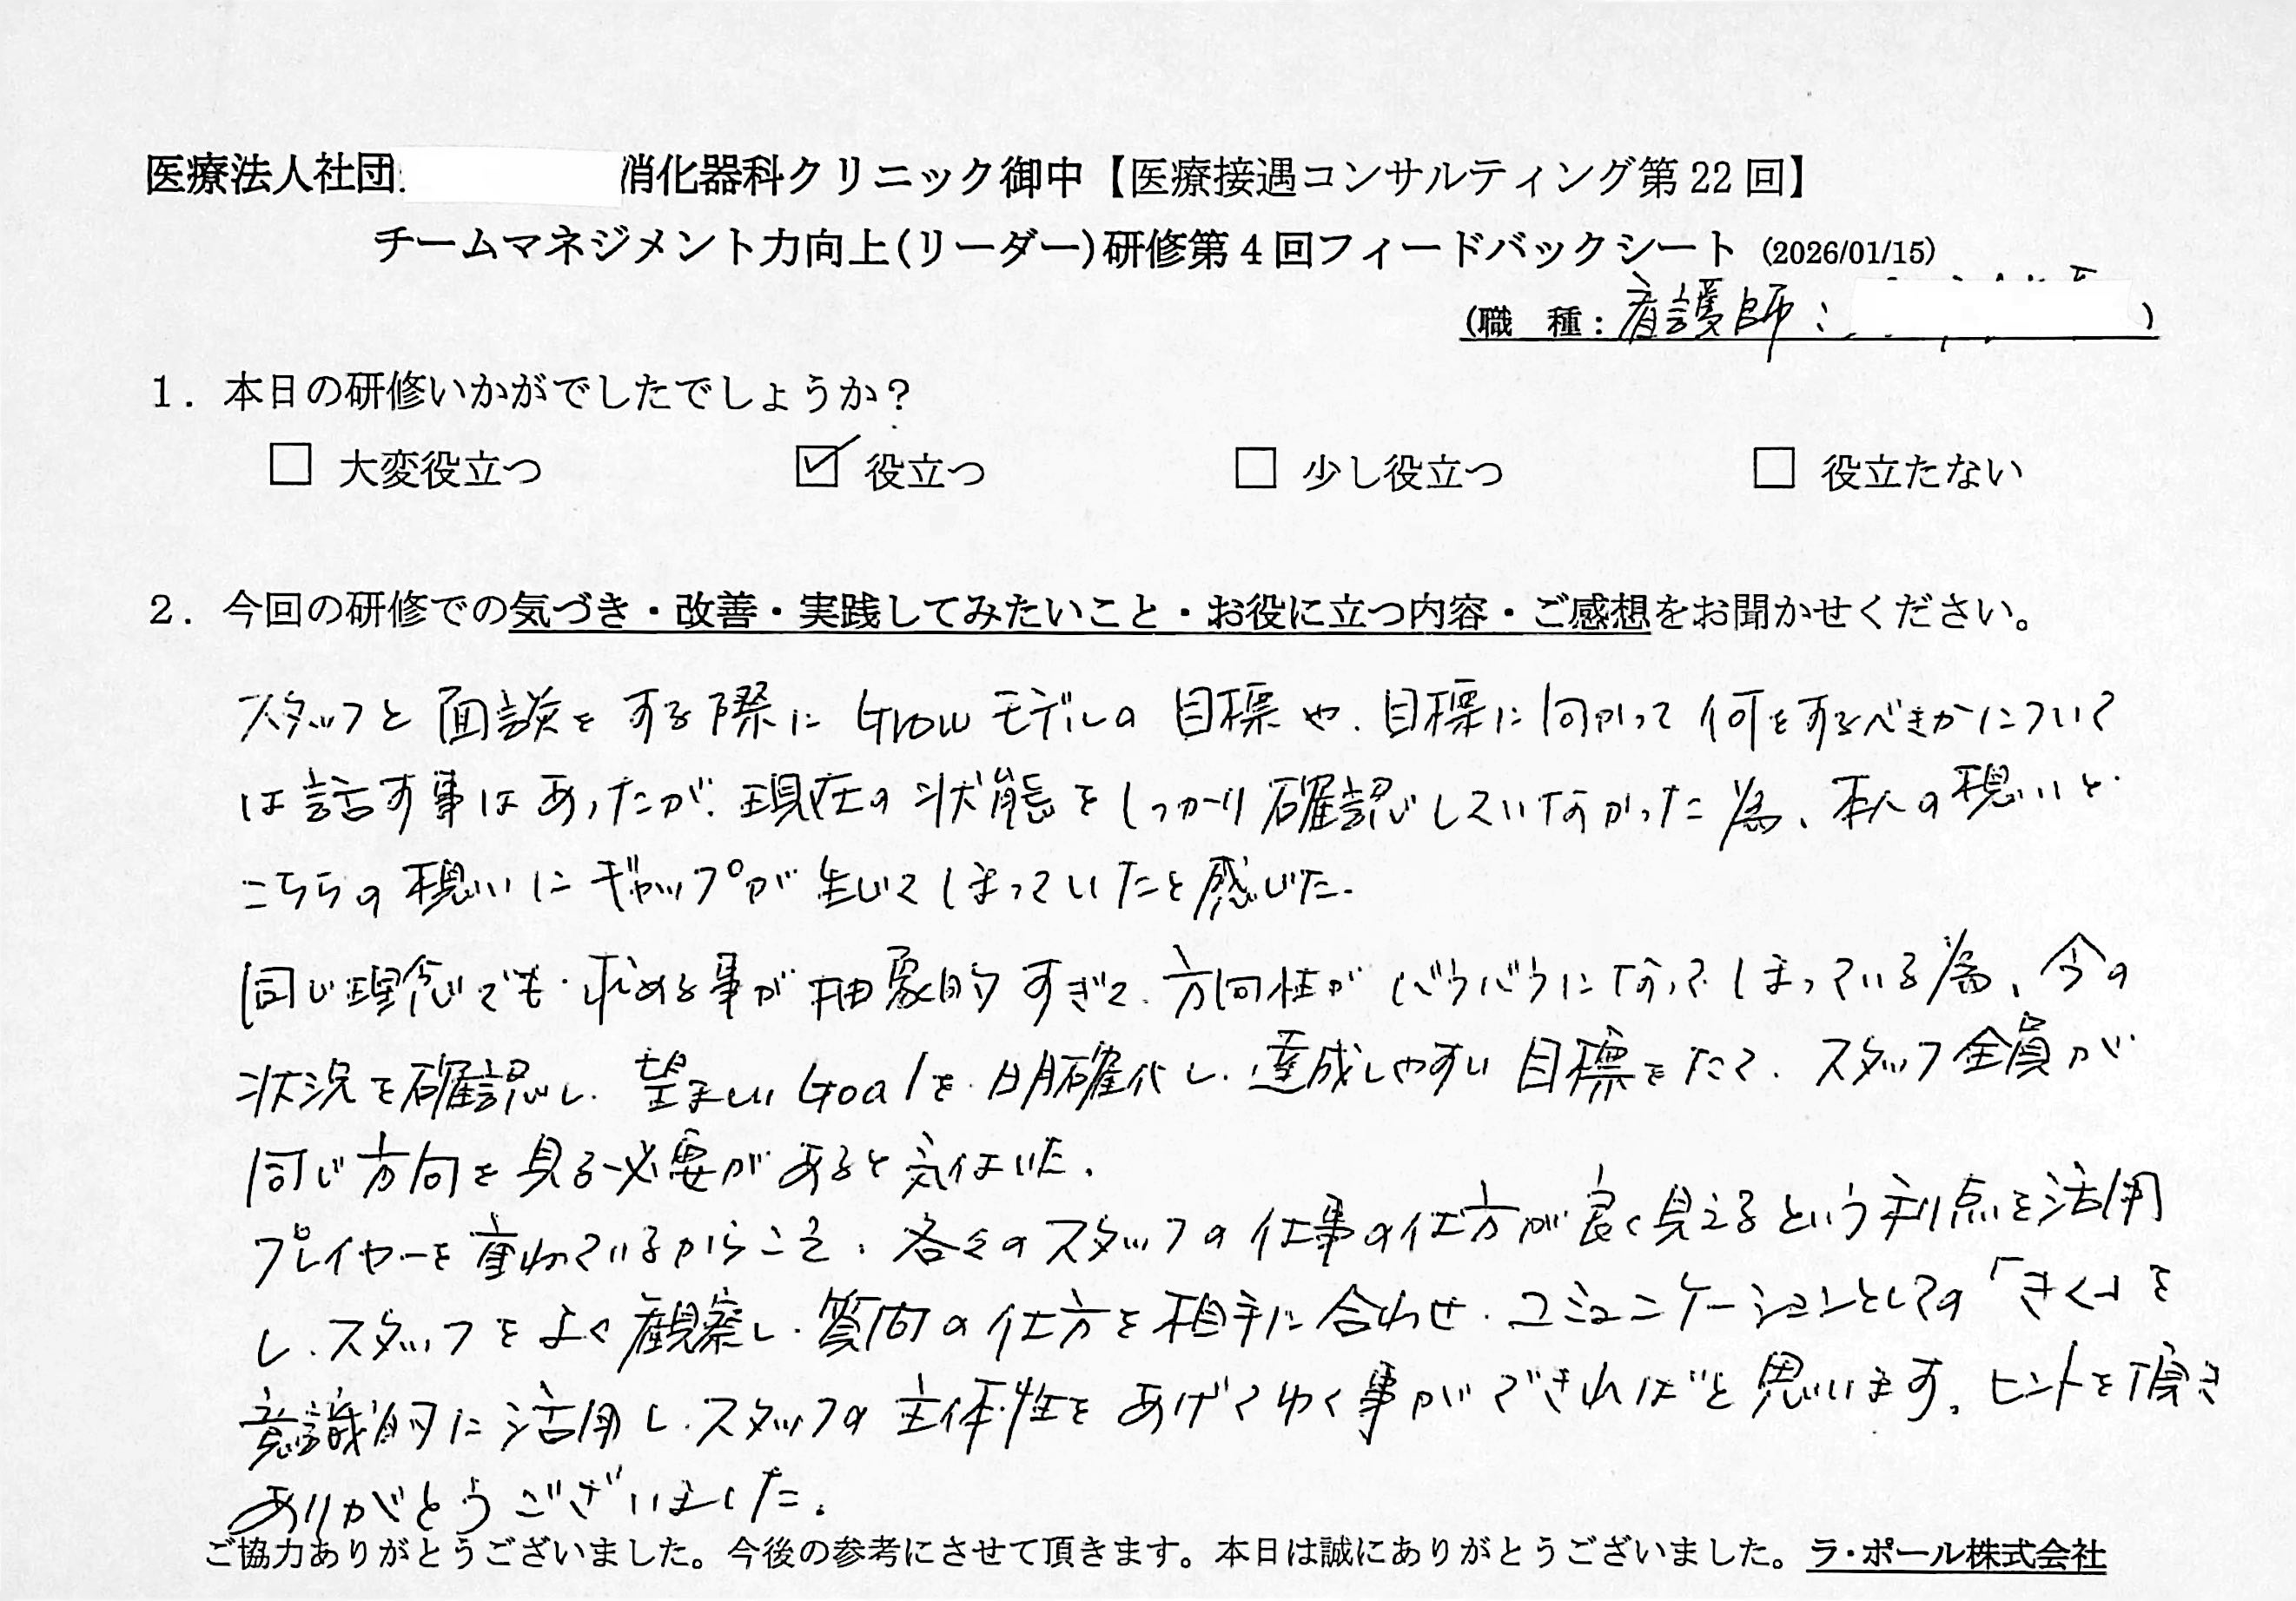 医療法人社団 消化器科クリニック御中【医療接遇コンサルティング第 22 回】
チームマネジメント力向上(リーダー)研修第 4 回フィードバックシート (2026/01/15)
(職 種：看護師： )
1．本日の研修いかがでしたでしょうか？
□ 大変役立つ ☑ 役立つ □ 少し役立つ □ 役立たない
2．今回の研修での気づき・改善・実践してみたいこと・お役に立つ内容・ご感想をお聞かせください。
スタッフと面談をする際に Grow モデルの目標や、目標に向かって何をするべきかについて
は話す事はあったが、現在の状態をしっかり確認していなかった為、本人の想いと
こちらの想いにギャップが生じてしまっていたと感じた。
同じ理念でも、求める事が抽象的すぎて、方向性がバラバラになってしまっている為、今の
状況を確認し、望ましい Goal を明確化し、達成しやすい目標をたて、スタッフ全員が
同じ方向を見る必要があると気付いた。
プレイヤーを兼ねているからこそ、各々のスタッフの仕事の仕方が良く見えるという利点を活用
し、スタッフをよく観察し、質問の仕方を相手に合わせ、コミュニケーションとしての「きく」を
意識的に活用し、スタッフの主体性をあげてゆく事ができればと思います。ヒントを頂き
ありがとうございました。
ご協力ありがとうございました。今後の参考にさせて頂きます。本日は誠にありがとうございました。ラ・ポール株式会社